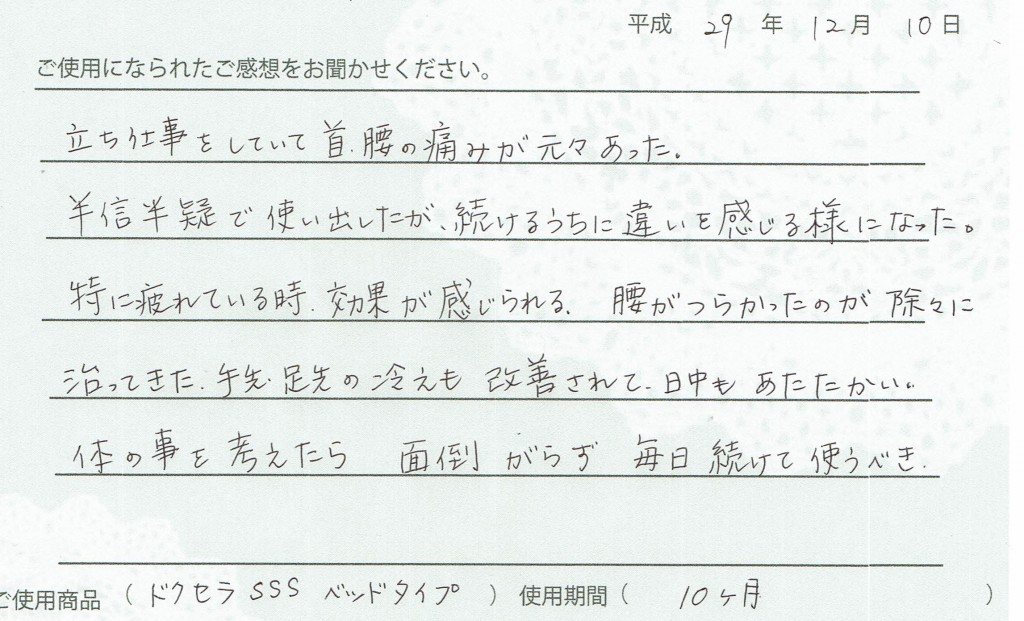 平成 29 年 12月 10日
ご使用になられたご感想をお聞かせください。
立ち仕事をしていて首、腰の痛みが元々あった。
半信半疑で使い出したが、続けるうちに違いを感じる様になった。
特に疲れている時、効果が感じられる、腰がつらかったのが除々に
治ってきた、手先、足先の冷えも改善されて、日中もあたたかい。
体の事を考えたら 面倒がらず 毎日続けて使うべき.
ご使用商品 (ドクセラ SSS ベッドタイプ) 使用期間 (10ヶ月)